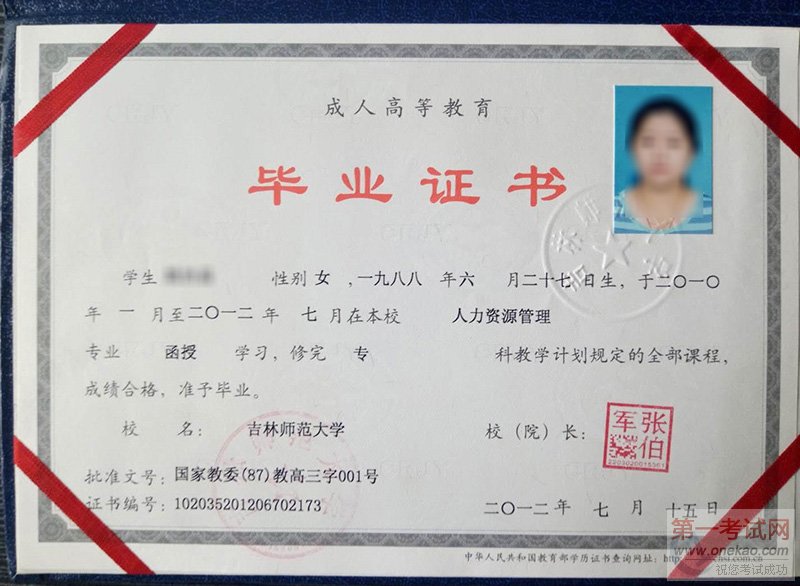 成人高等教育
毕业证书
学生 性别 女 ，一九八八 年 六 月 二十七 日生，于二〇一〇
年 一 月至二〇一二 年 七 月在本校 人力资源管理
专业 函授 学习，修完 专 科教学计划规定的全部课程，
成绩合格，准予毕业。
校 名： 吉林师范大学 校（院）长：
张伯军
2203020015561
批准文号：国家教委(87)教高三字001号
证书编号：102035201206702173
二〇一二年 七 月 十五日
中华人民共和国教育部学历证书查询网址：
第一考试网
www.onekao.com
祝您考试成功